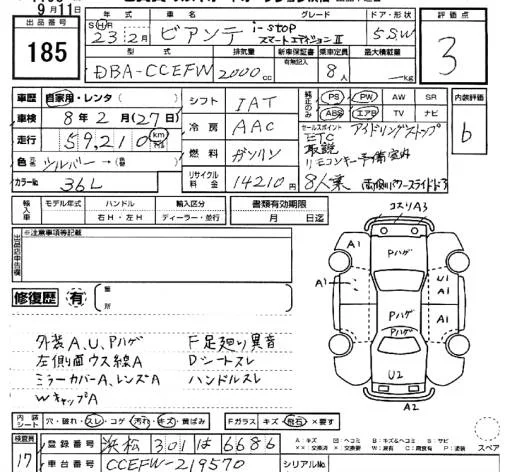 9月11日
出品番号
185
年式
SH 23 2月
車名
ビアンテ
i-stop
スマートエディションⅡ
グレード
ドア・形状
5SW
評価点
3
型式
DBA-CCEFW
排気量
2000cc
新車保証書
有 記入 無
乗車定員
8人
最大積載量
kg
車歴
自家用・レンタ( )
車検
8年2月(27日)
走行
59,210km
色
シルバー→( )
カラーNo.
36L
シフト
IAT
冷房
AAC
燃料
ガソリン
リサイクル料金
14210円
純正のみ
PS PW AW SR
ABS エアB TV ナビ
内装評価
b
セールスポイント アイドリングストップ
ETC
取説
リモコンキー予備室内
8人乗 両側パワースライドドア
輸入車
モデル年式 ハンドル 輸入区分
年 右H・左H ディーラー・並行
書類有効期限
月 日迄
※注意事項等記載
出品店申告欄
修復歴 有
箇所
外装A,U,Pハゲ
左側面ウス線A
ミラーカバーA,レンズA
WキャップA
F足廻り異音
Dシートスレ
ハンドルスレ
コスリA3
A1 Pハゲ
A1 U1 A1
Pハゲ A1
Pハゲ
U2
A2
内装シート
穴・破れ・スレ・コゲ・汚れ・キズ・黄ばみ
Fガラス キズ・飛石・×要す
検査員
17
登録番号 浜松 301 は 6686
車台番号 CCEFW-219570
シリアルNo.
A:キズ U:ヘコミ B:キズ&ヘコミ S:サビ
××:交換済 ×:要交換 W:波 C:腐食 P:塗装
スペア